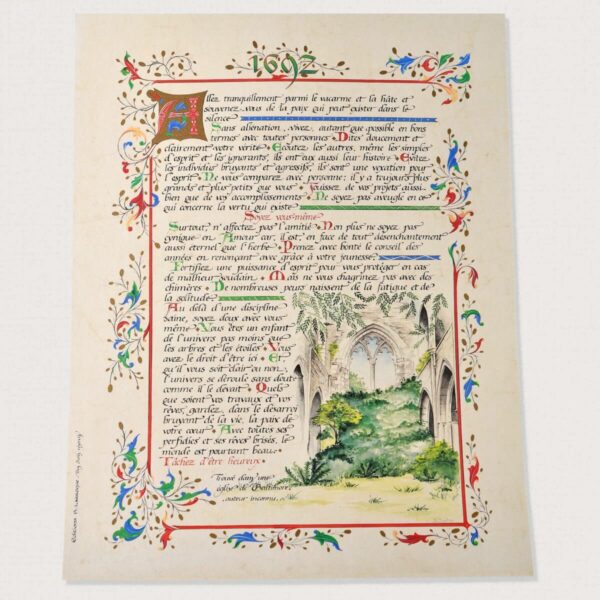 1692
Allez tranquillement parmi le vacarme et la hâte et
souvenez-vous de la paix qui peut exister dans le
silence
Sans aliénation, vivez, autant que possible en bons
termes avec toutes personnes Dites doucement et
clairement votre vérité Ecoutez les autres, même les simples
d'esprit et les ignorants, ils ont eux aussi leur histoire Evitez
les individus bruyants et agressifs, ils sont une vexation pour
l'esprit Ne vous comparez avec personne: il y a toujours plus
grands et plus petits que vous Jouissez de vos projets aussi-
bien que de vos accomplissements Ne soyez pas aveugle en ce
qui concerne la vertu qui existe
Soyez vous-même
Surtout, n'affectez pas l'amitié Non plus ne soyez pas
cynique en Amour car, il est, en face de tout désenchantement
aussi éternel que l'herbe Prenez avec bonté le conseil des
années en renonçant avec grâce à votre jeunesse
Fortifiez une puissance d'esprit pour vous protéger en cas
de malheur soudain Mais ne vous chagrinez pas avec des
chimères De nombreuses peurs naissent de la fatigue et de
la solitude
Au délà d'une discipline
saine, soyez doux avec vous
même Vous êtes un enfant
de l'univers pas moins que
les arbres et les étoiles Vous
avez le droit d'être ici Et,
qu'il vous soit clair ou non,
l'univers se déroule sans doute
comme il le devait Quels
que soient vos travaux et vos
rêves, gardez, dans le désarroi
bruyant de la vie, la paix de
votre cœur Avec toutes ses
perfidies et ses rêves brisés, le
monde est pourtant beau
Tâchez d'être heureux
Trouvé dans une
église de Baltimore
auteur inconnu